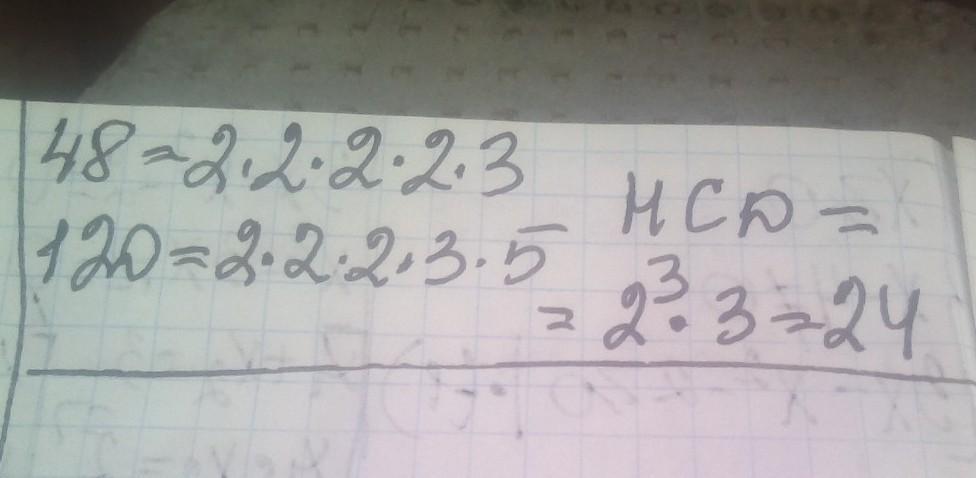 48 = 2·2·2·2·3
120 = 2·2·2·3·5
HCD =
= 2³·3 = 24